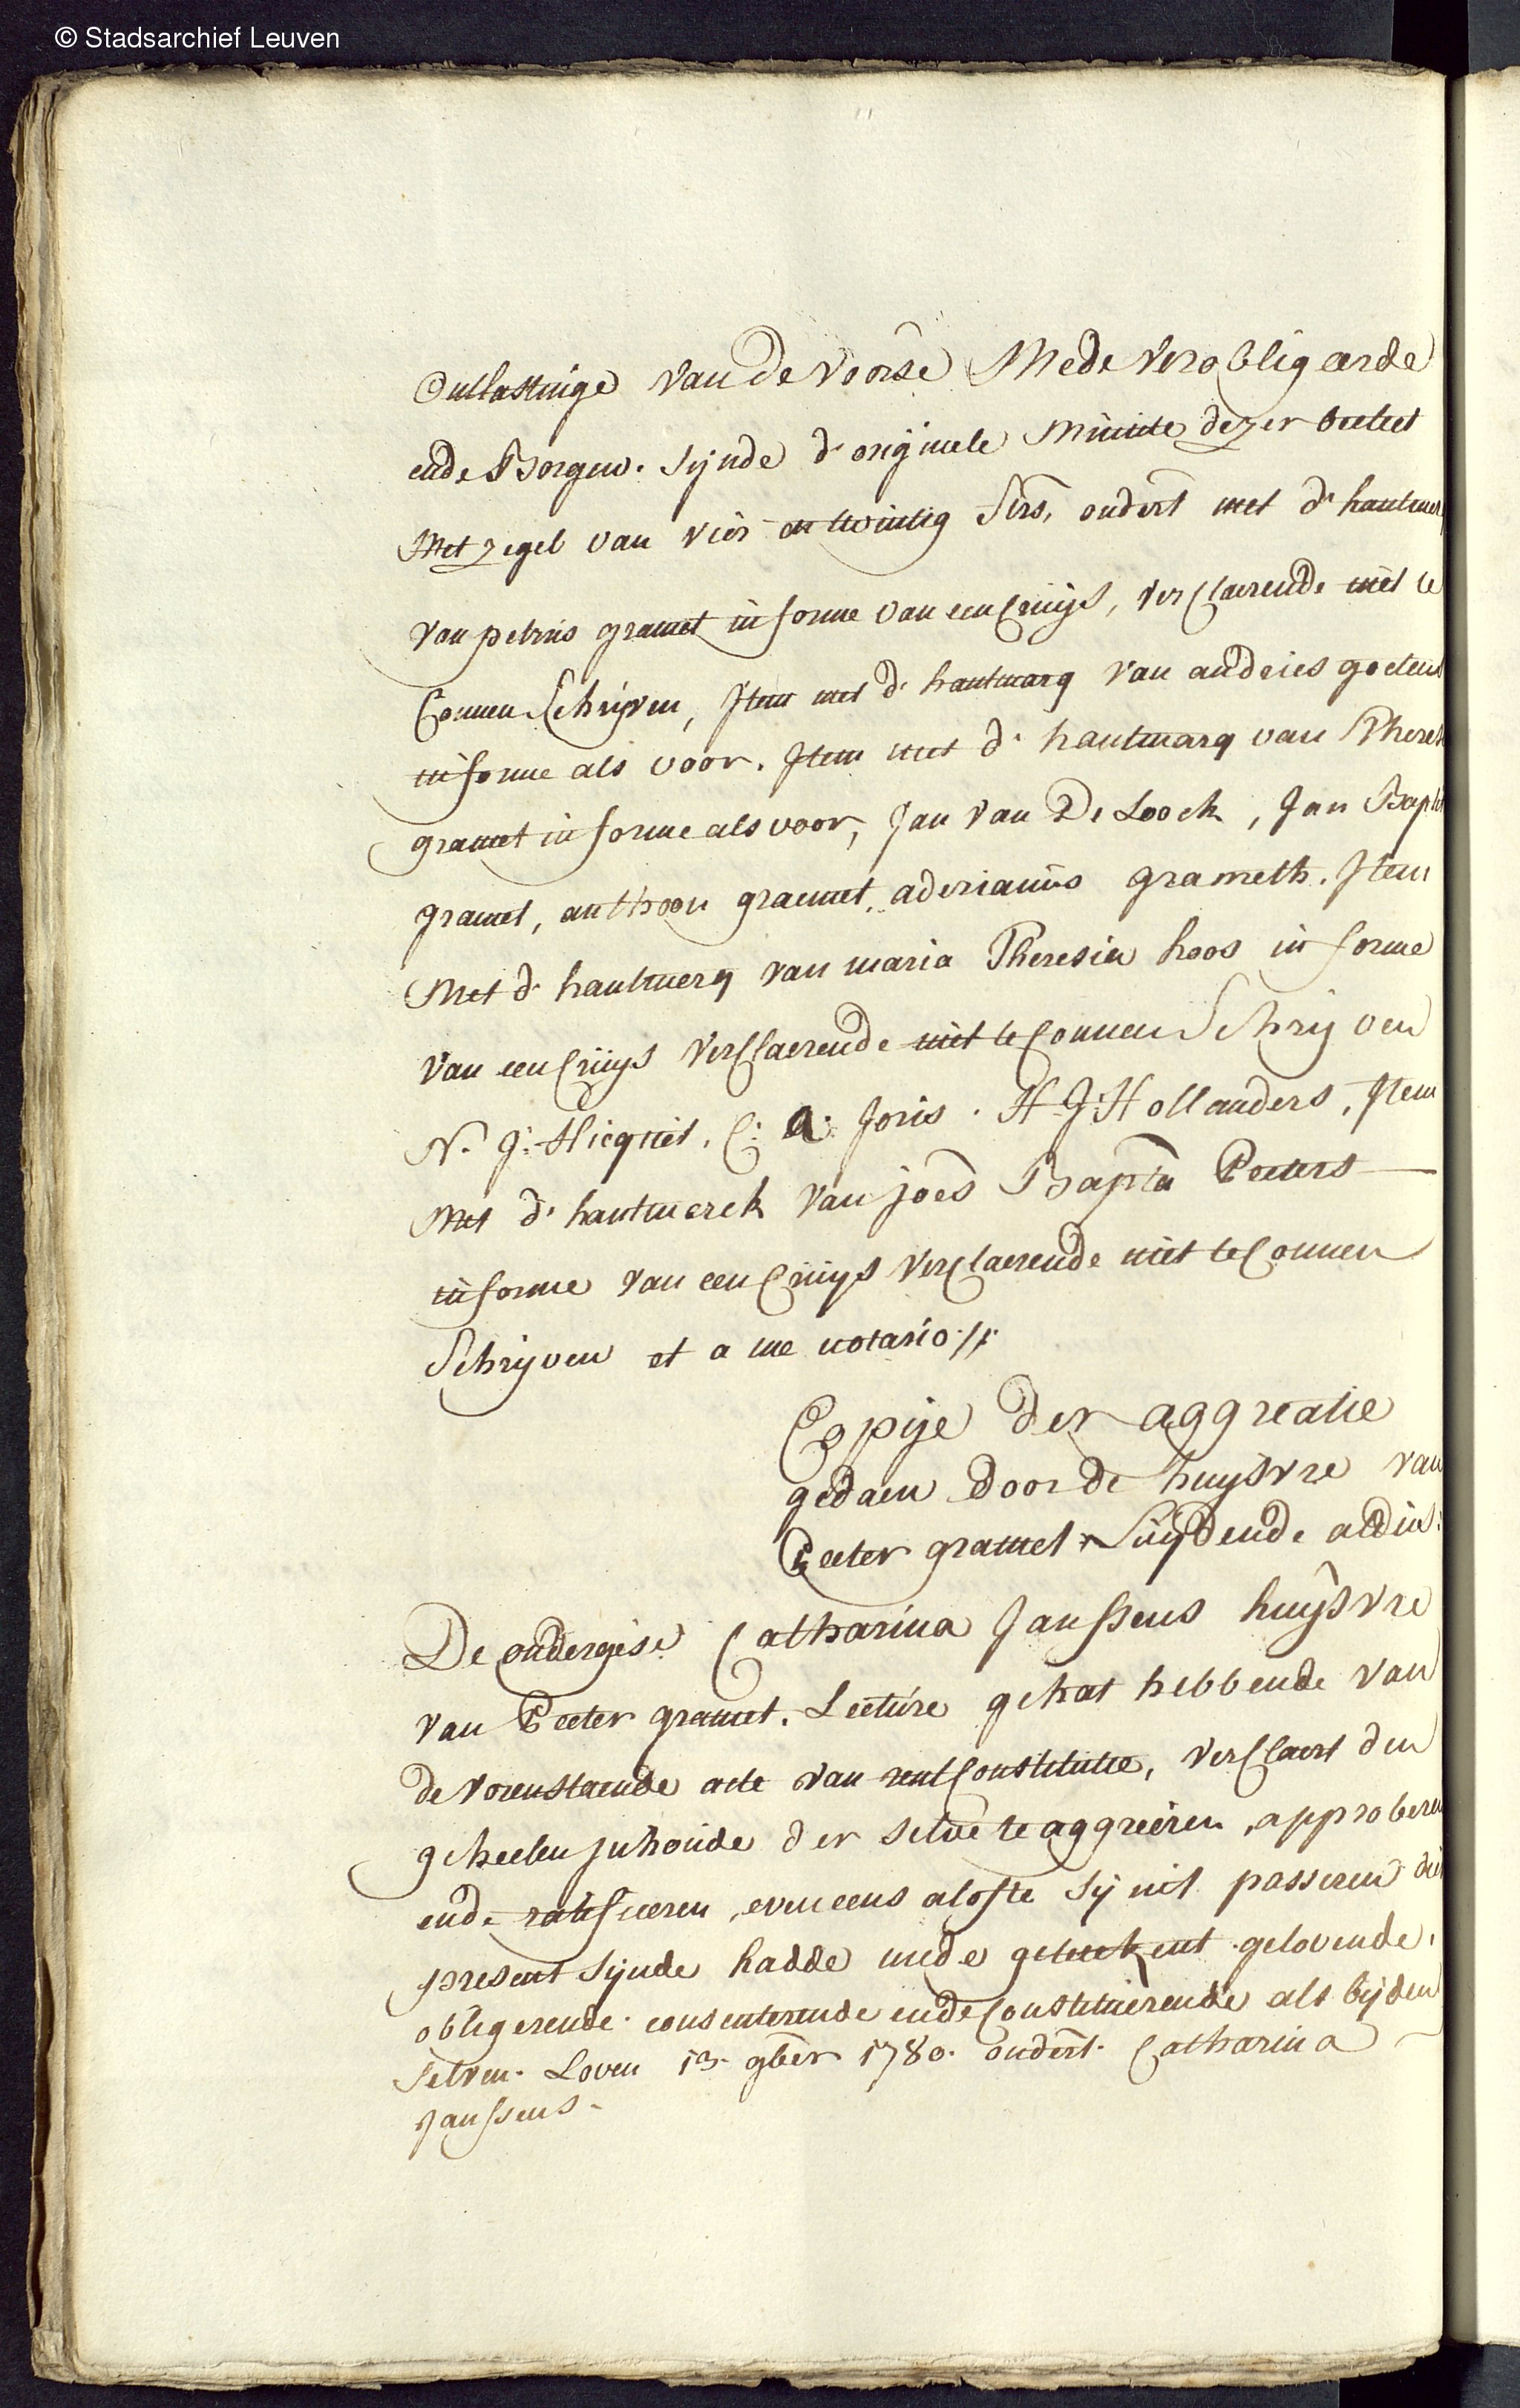 © Stadsarchief Leuven
Ontlastinge van de voorse Mede verobligeerde
ende Borgen. Sijnde d'originele Minute dezer becleet
Met zegel van vier en twintig stvrs, ondert met d' hantmer
van petrus gramet in forme van een Cruys, verclaerende niet te
Connen Schrijven, Item met d' hantmarq van andries goetens
in forme als voor. Item met d' hantmarq van Theresi
gramet in forme als voor, Jan van De Loock, Jan Baptis
gramet, anthoon graemet, aderianus grameth. Item
Met d' hantmerq van maria Theresia hoos in forme
van een Cruys verclaerende niet te Connen Schrijven
N. J. Hicquet. C: A. Joris. H J Hollanders, Item
Met d' hantmerck van joēs Bapta Peeters
in forme van een Cruys verclaerende niet te Connen
Schrijven et a me notario //.
Coppije der aggreatie
gedaen door de huysvre van
Peeter gramet Luydende aldus:
De ondergese. Catharina Janssens huysvre
van Peeter gramet. Lecture gehat hebbende van
de vorenstaende acte van rentconstitutie, verclaert den
geheelen Inhoude der selve te aggreëren, approberen
ende ratificeren, eveneens alofte Sij int passeren dier
present Sijnde hadde mede geteekent gelovende,
obligerende consenterende ende Constituerende als bij den
selven. Loven 13. 9ber 1780. ondert. Catharina
Janssens.